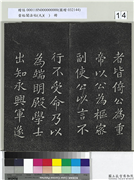 者皆倚公為重
帝以公為樞密
副使公以言不
行不受命乃以
為端明殿學士
出知永興軍遂
14